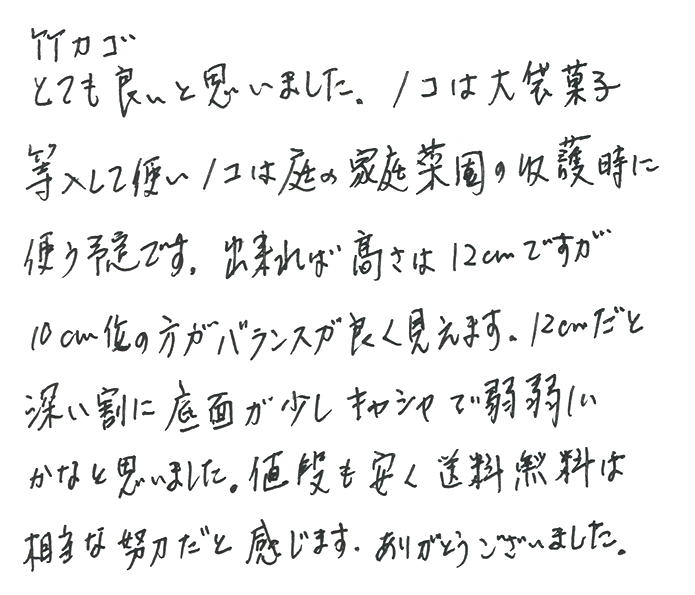 竹カゴ
とても良いと思いました。1コは大袋菓子
等入して使い1コは庭の家庭菜園の収護時に
使う予定です。出来れば高さは12cmですが
10cm位の方がバランスが良く見えます。12cmだと
深い割に底面が少しキャシャで弱弱しい
かなと思いました。値段も安く送料無料は
相当な努力だと感じます。ありがとうございました。